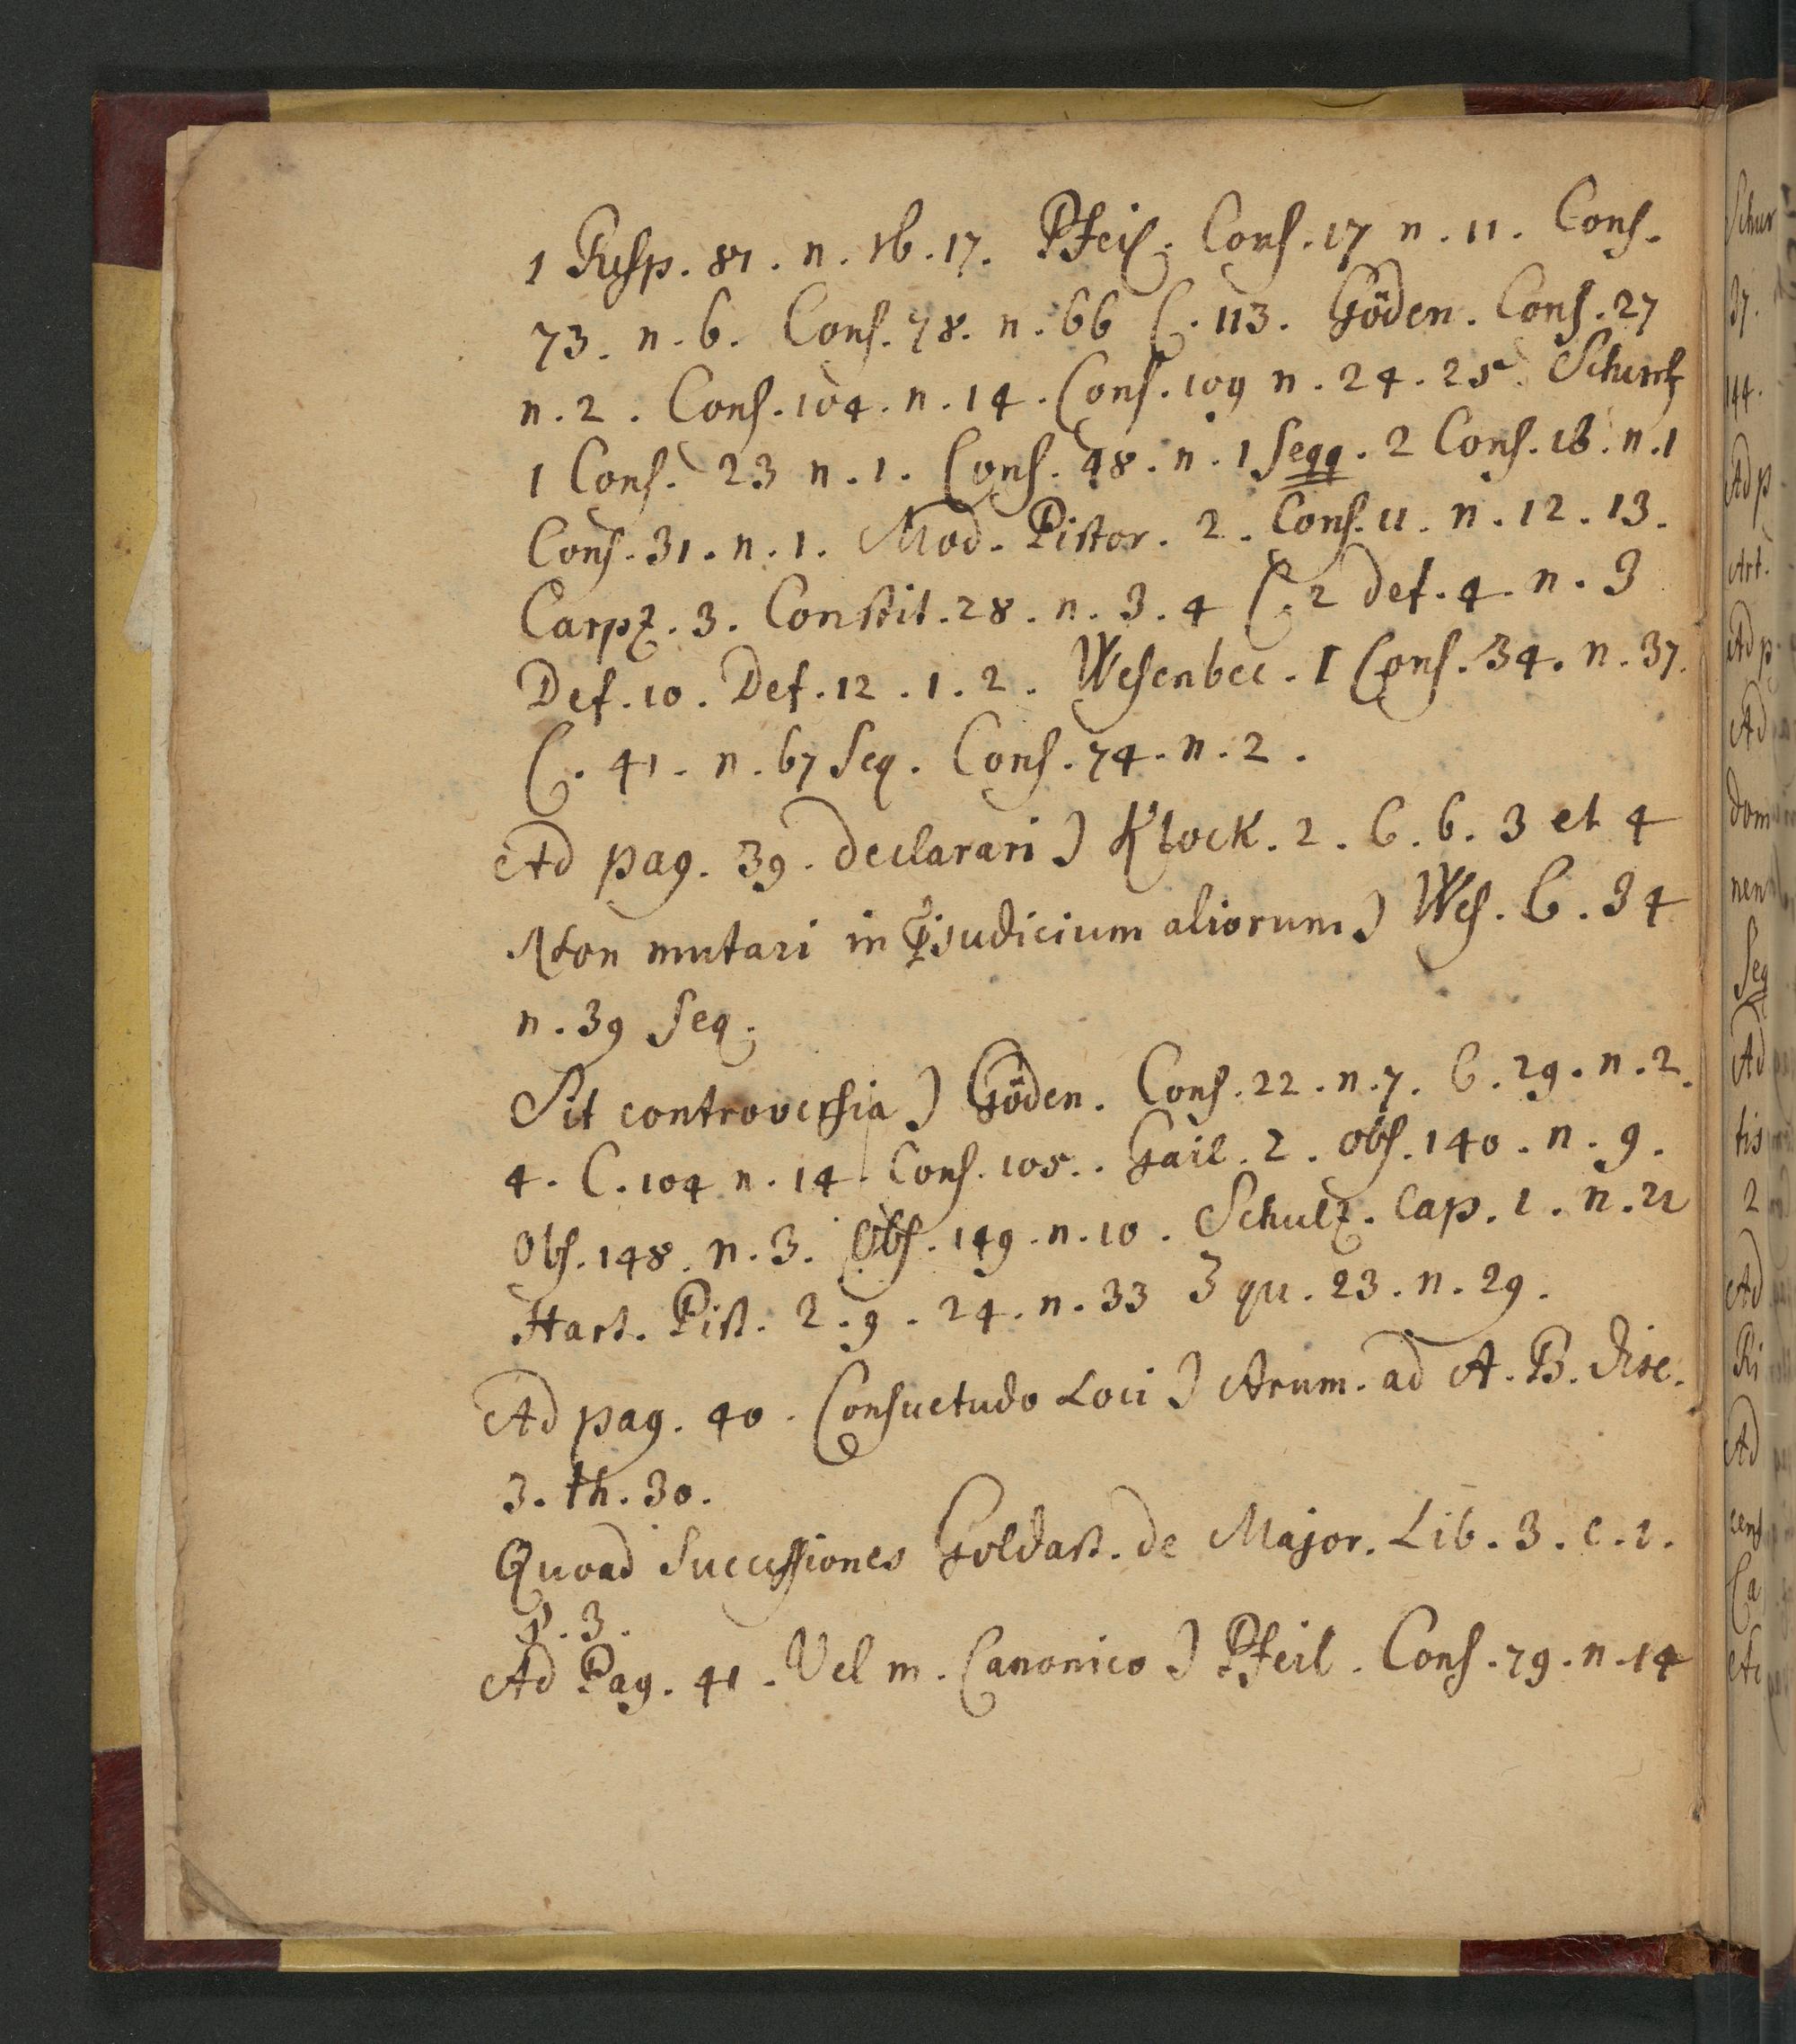 1 Resp. 81. n. 16. 17. Pfeil. Cons. 17 n. 11. Cons.
73. n. 6. Cons. 78. n. 66 C. 113. Göden. Cons. 27
n. 2. Cons. 104. n. 14. Cons. 109 n. 24. 25. Schurf
1 Cons. 23 n. 1. Cons. 48. n. 1 Seqq. 2 Cons. 18. n. 1
Cons. 31. n. 1. Mod. Pistor. 2. Cons. 11. n. 12. 13.
Carpz. 3. Constit. 28. n. 3. 4 C. 2 def. 4. n. 3
Def. 10. Def. 12. 1. 2. Wesenbec. I Cons. 34. n. 37.
C. 41. n. 67 Seq. Cons. 74. n. 2.
Ad pag. 39. declarari) Klock. 2. C. 6. 3 et 4
Non mutari in pjudicium aliorum) Wes. C. 34
n. 39 Seq.
Sit controversia) Göden. Cons. 22. n. 7. C. 29. n. 2.
4. C. 104 n. 14. Cons. 105. Gail. 2. obs. 140. n. 9.
Obs. 148. n. 3. Obs. 149. n. 10. Schulz. Cap. 1. n. 21
Hart. Pist. 2. q. 24. n. 33 3 qu. 23. n. 29.
Ad pag. 40. Consuetudo Loci) Arum. ad A. B. disc.
3. th. 30.
Quoad Successiones Goldast. de Major. Lib. 3. c. 1.
p. 3.
Ad Pag. 41. Vel m. Canonico) Pfeil. Cons. 79. n. 14